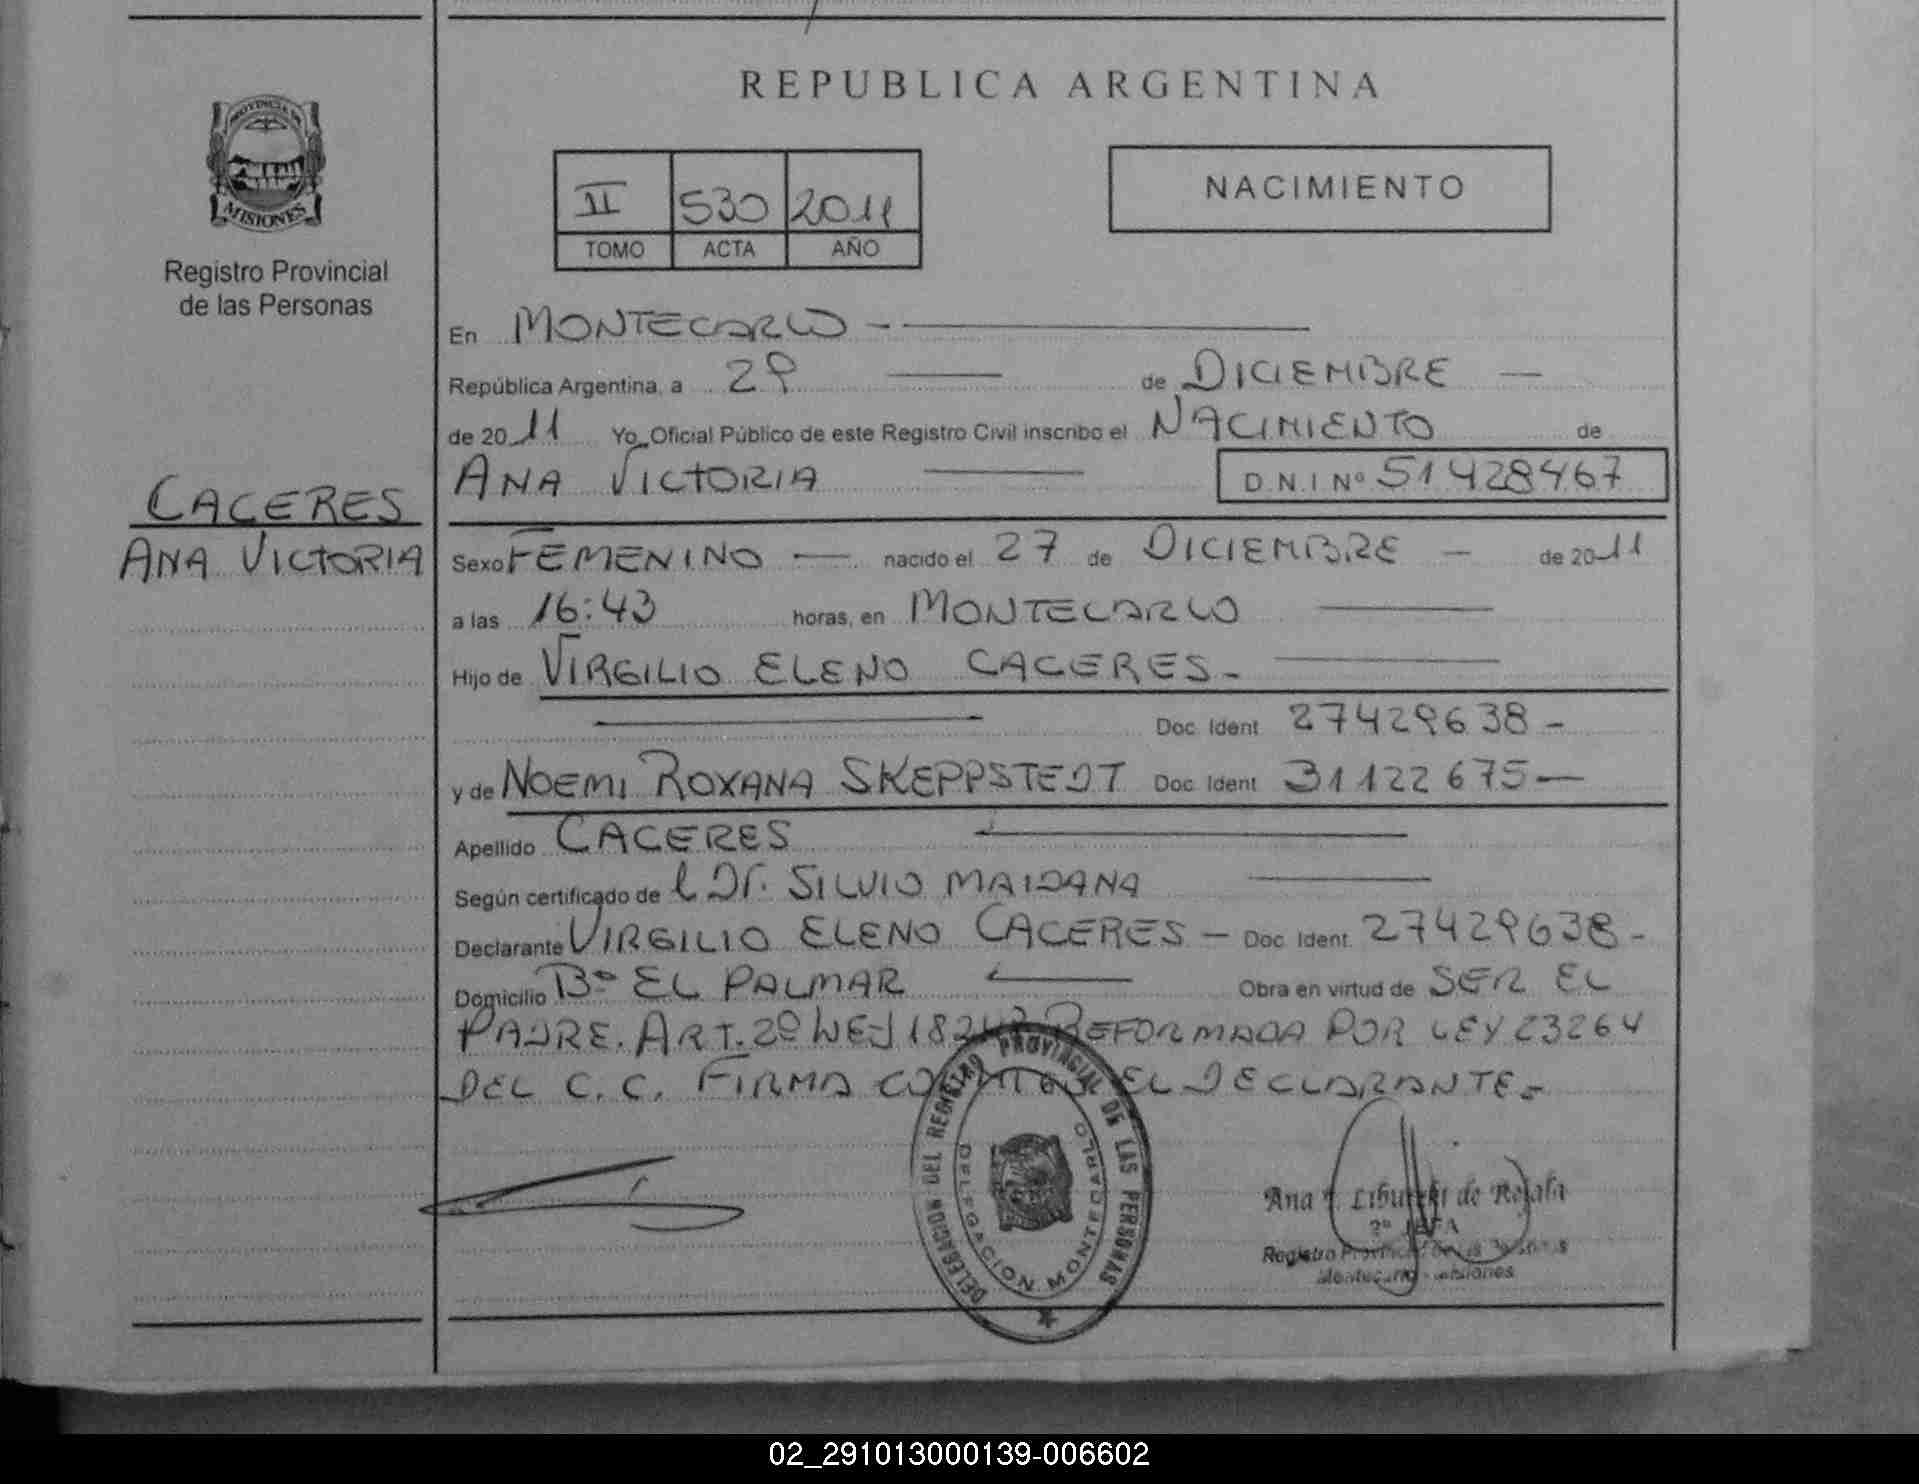 REPUBLICA ARGENTINA
PROVINCIA DE
MISIONES
Registro Provincial
de las Personas
II 530 2011
TOMO ACTA AÑO
NACIMIENTO
En MONTECARLO -
República Argentina, a 29 de DICIEMBRE —
de 2011 Yo, Oficial Público de este Registro Civil inscribo el NACIMIENTO de
ANA VICTORIA D.N.I Nº 51428467
CACERES
ANA VICTORIA
Sexo FEMENINO — nacido el 27 de DICIEMBRE — de 2011
a las 16:43 horas, en MONTECARLO
Hijo de VIRGILIO ELENO CACERES -
Doc. Ident 27429638 -
y de NOEMI ROXANA SKEPPSTEDT Doc. Ident 31122675 —
Apellido CACERES
Según certificado de l Dr. SILVIO MAIDANA
Declarante VIRGILIO ELENO CACERES — Doc. Ident. 27429638 -
Domicilio Bº EL PALMAR Obra en virtud de SER EL
PADRE. ART. 2º LEY REFORMADA POR LEY 23264
DEL C. C. FIRMA EL DECLARANTE.-
DELEGACION DEL REGISTRO PROVINCIAL DE LAS PERSONAS
DELEGACION MONTECARLO
Ana de
2º JEFA
Registro Provincial de las Personas
Montecarlo - Misiones
02_291013000139-006602